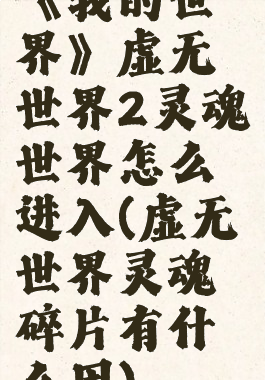 《我的世
界》虚无
世界2灵魂
世界怎么
进入(虚无
世界灵魂
碎片有什
么用)